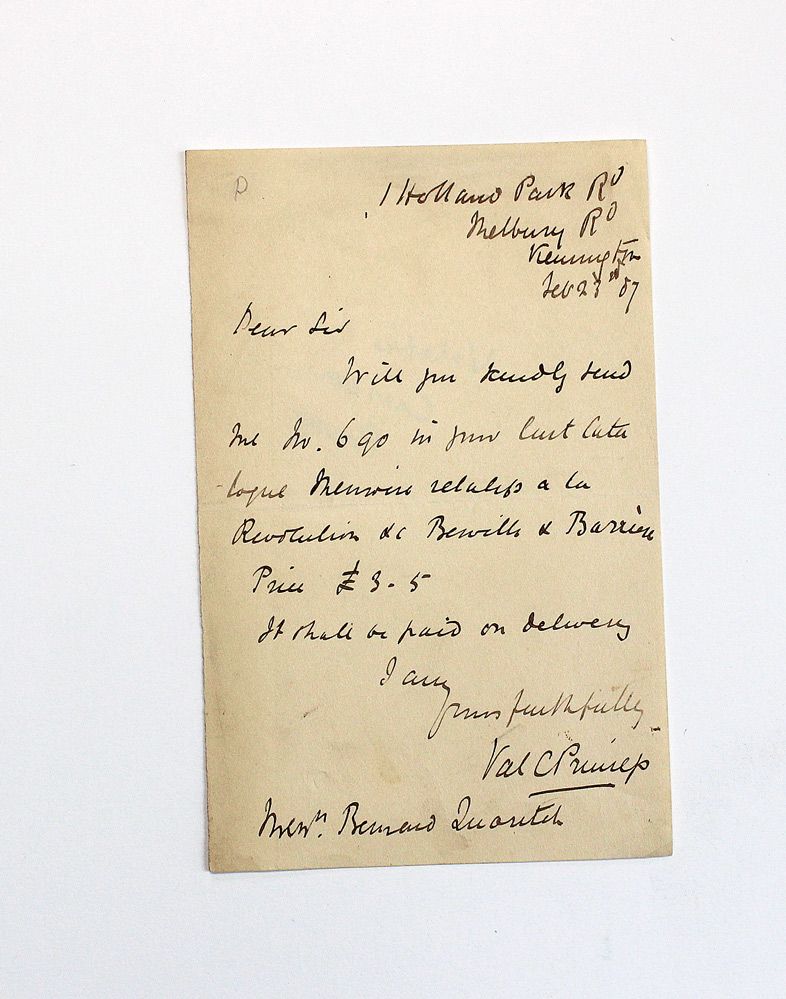 D
1 Holland Park Rd
Melbury Rd
Kensington
Feb 23rd 87
Dear Sir
Will you kindly send
me No. 690 in your last Cata
-logue Memoires relatifs a la
Revolution &c Berville & Barrière
Price £3-5
It shall be paid on delivery
I am
yours faithfully
Val C Prinsep
Messrs. Bernard Quaritch